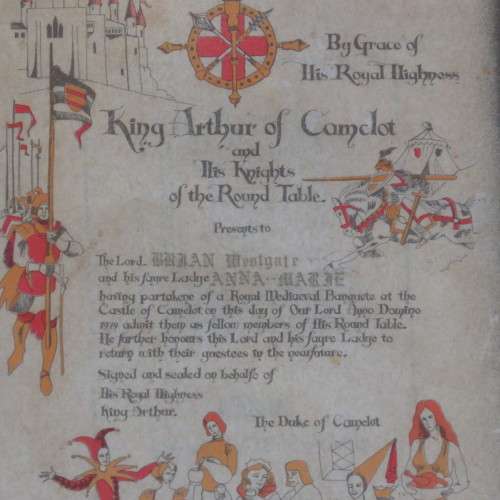 By Grace of
His Royal Highness
King Arthur of Camelot
and
His Knights
of the Round Table.
Presents to
The Lord. BRIAN Westgate
and his fayre Ladye ANNA-MARIE
having partakene of a Royal Mediaeval Banquete at the
Castle of Camelot on this day of Our Lord Anno Domino
1979 admit them as fellow members of His Round Table.
He farther honours this Lord and his fayre Ladye to
return with their guestees in the nearfuture.
Signed and sealed on behalfe of
His Royal Highness
King Arthur.
The Duke of Camelot